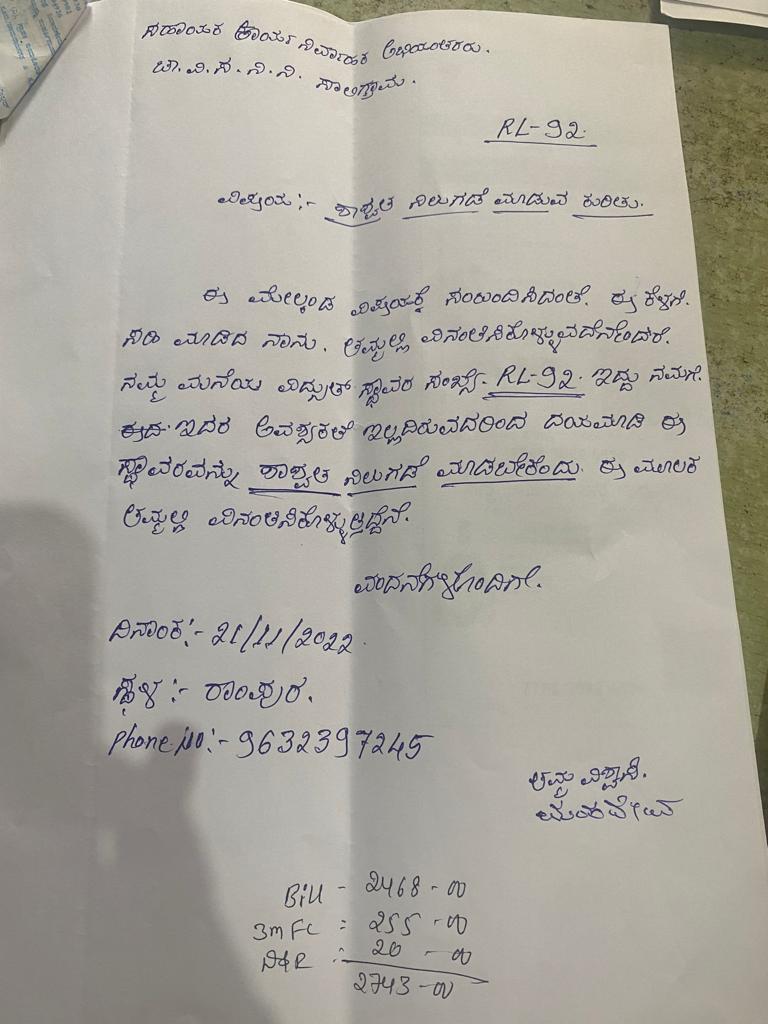 ಸಹಾಯಕ ಕಾರ್ಯ ನಿರ್ವಾಹಕ ಅಭಿಯಂತರರು.
ಚಾ.ವಿ.ಸ.ನಿ.ನಿ. ಸಾಲಿಗ್ರಾಮ.
RL-92.
ವಿಷಯ:- ಶಾಶ್ವತ ನಿಲುಗಡೆ ಮಾಡುವ ಕುರಿತು.
ಈ ಮೇಲ್ಕಂಡ ವಿಷಯಕ್ಕೆ ಸಂಬಂದಿಸಿದಂತೆ. ಈ ಕೆಳಗೆ.
ಸಹಿ ಮಾಡಿದ ನಾನು. ತಮ್ಮಲ್ಲಿ ವಿನಂತಿಸಿಕೊಳ್ಳುವದೆನೇಂದರೆ.
ನಮ್ಮ ಮನೆಯ ವಿದ್ಯುತ್ ಸ್ಥಾವರ ಸಂಖ್ಯೆ- RL-92. ಇದ್ದು ನಮಗೆ.
ಇದರ ಅವಶ್ಯಕತೆ ಇಲ್ಲದಿರುವದರಿಂದ ದಯಮಾಡಿ ಈ
ಸ್ಥಾವರವನ್ನು ಶಾಶ್ವತ ನಿಲುಗಡೆ ಮಾಡಬೇಕೆಂದು. ಈ ಮೂಲಕ
ತಮ್ಮಲ್ಲಿ ವಿನಂತಿಸಿಕೊಳ್ಳುತ್ತಿದ್ದೆನೆ.
ವಂದನೆಗಳೊಂದಿಗೆ.
ದಿನಾಂಕ:- 21/11/2022.
ಸ್ಥಳ :- ರಾಂಪುರ.
phone.No:- 9632397245
ತಮ್ಮ ವಿಶ್ವಾಸಿ.
ಮಹದೇವ
Bill - 2468-00
3mFC : 255-00
D&R :- 20 -00
2743-00